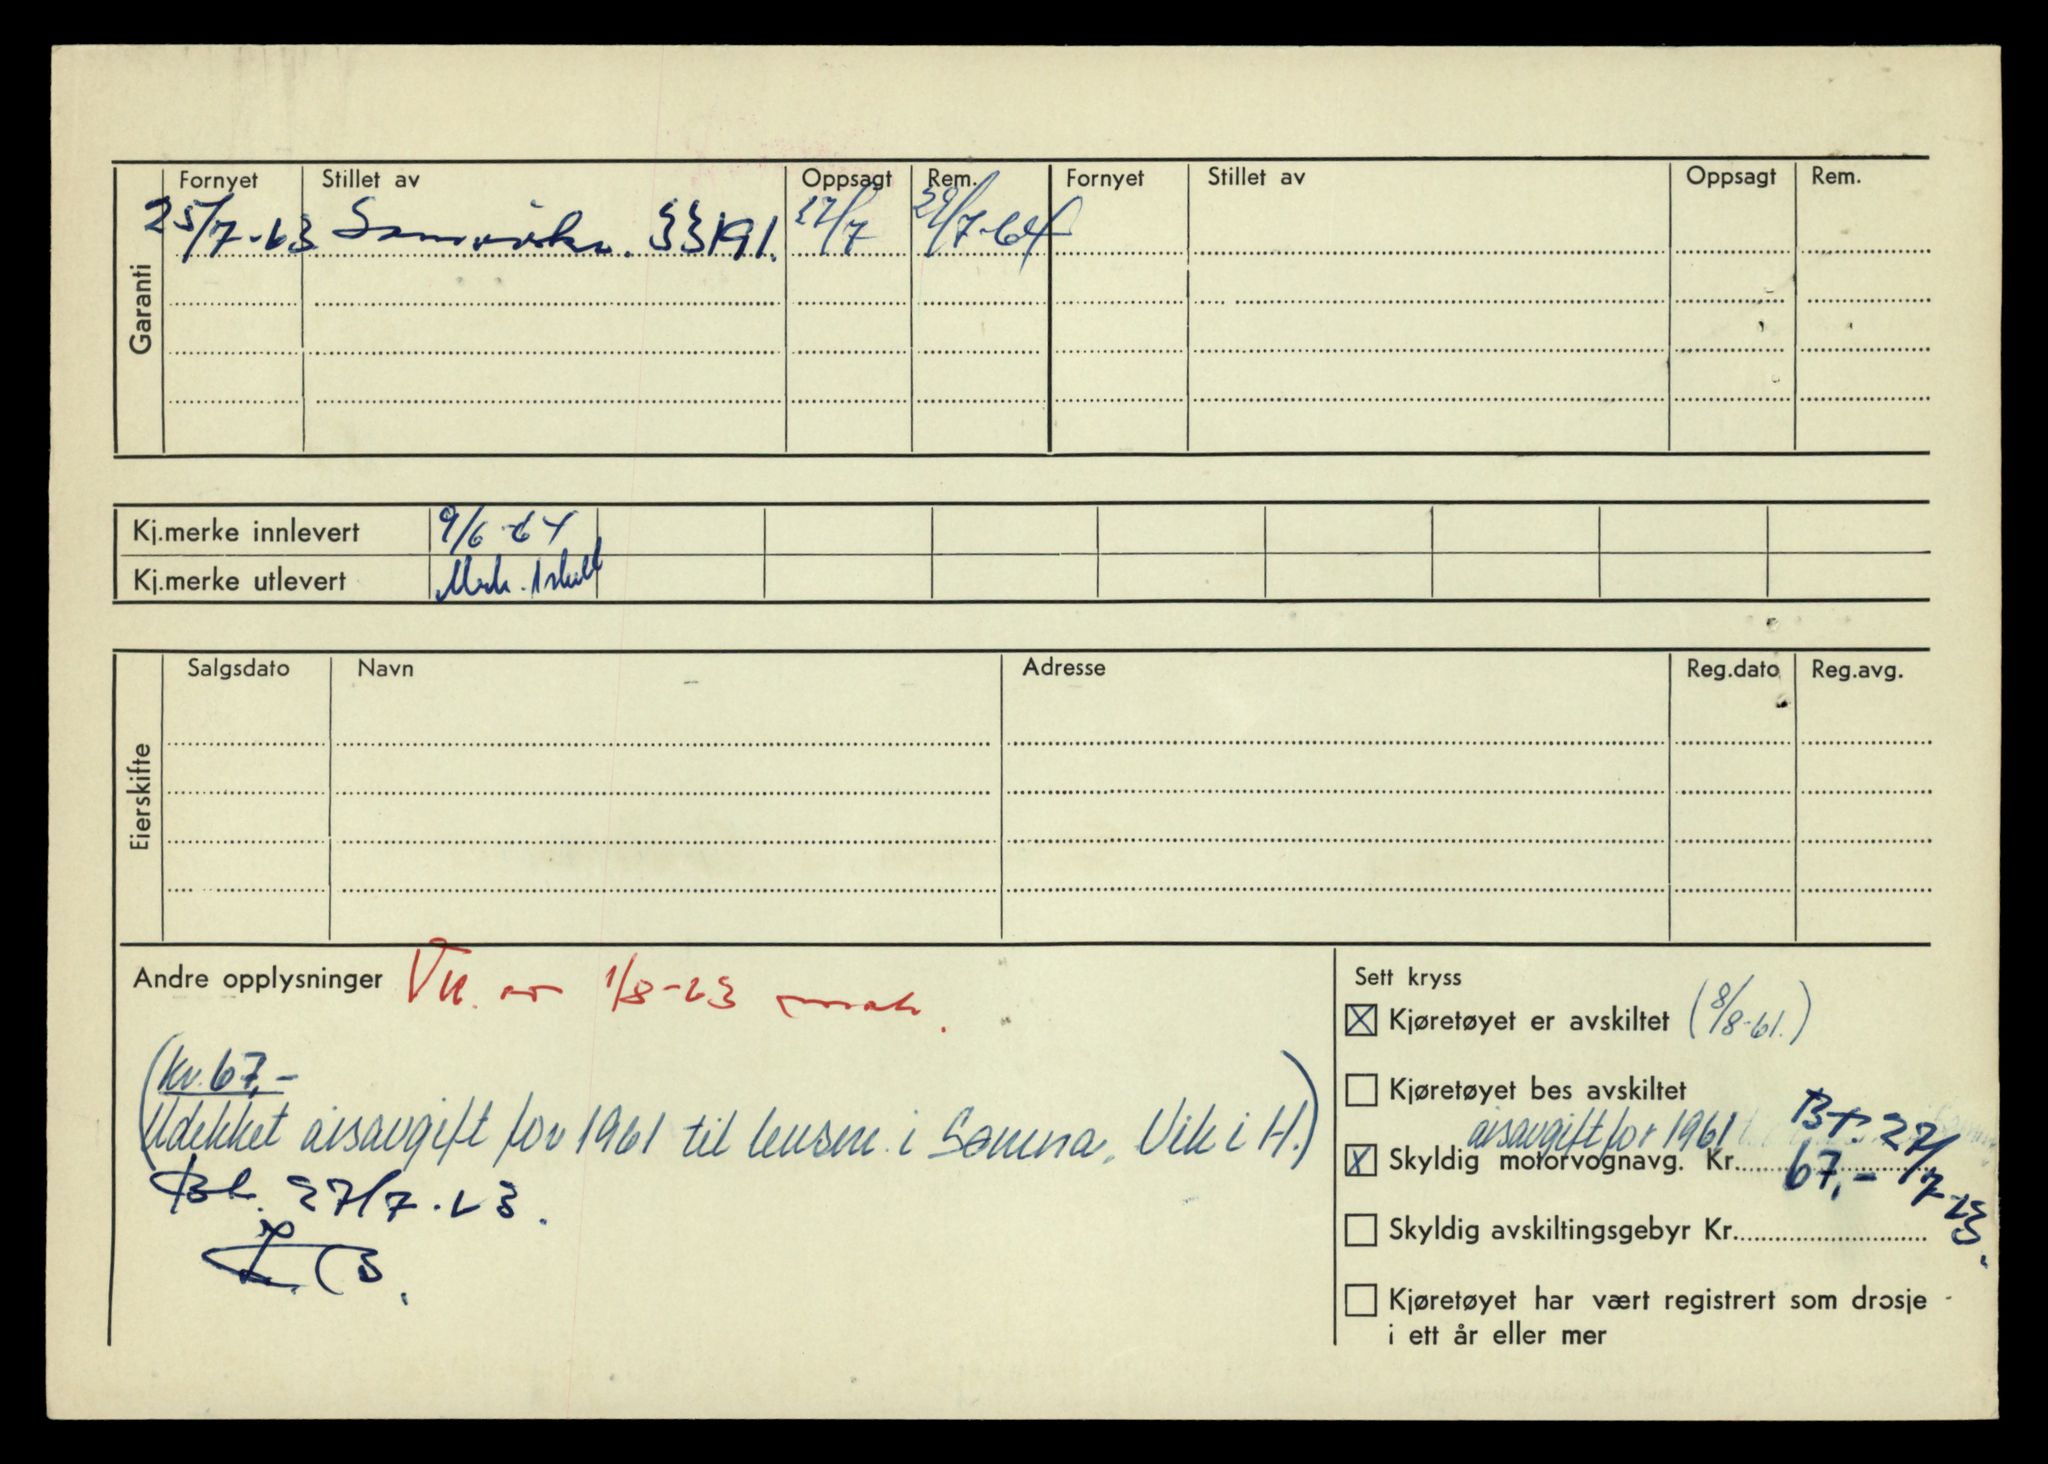 Garanti
Fornyet Stillet av Oppsagt Rem. Fornyet Stillet av Oppsagt Rem.
25/7-63 Samvirke. 33191. 27/7 29/7-64
Kj.merke innlevert 9/6-64
Kj.merke utlevert
Eierskifte
Salgsdato Navn Adresse Reg.dato Reg.avg.
Andre opplysninger 1/8-63
(Kr. 67,-
Udekket årsavgift for 1961 til lensm. i Sømna, Vik i H.)
Bt. 27/7-63.
Sett kryss
Kjøretøyet er avskiltet (8/8-61.)
Kjøretøyet bes avskiltet
årsavgift for 1961 Bt. 27/7-63.
Skyldig motorvognavg. Kr. 67,-
Skyldig avskiltingsgebyr Kr.
Kjøretøyet har vært registrert som drosje
i ett år eller mer